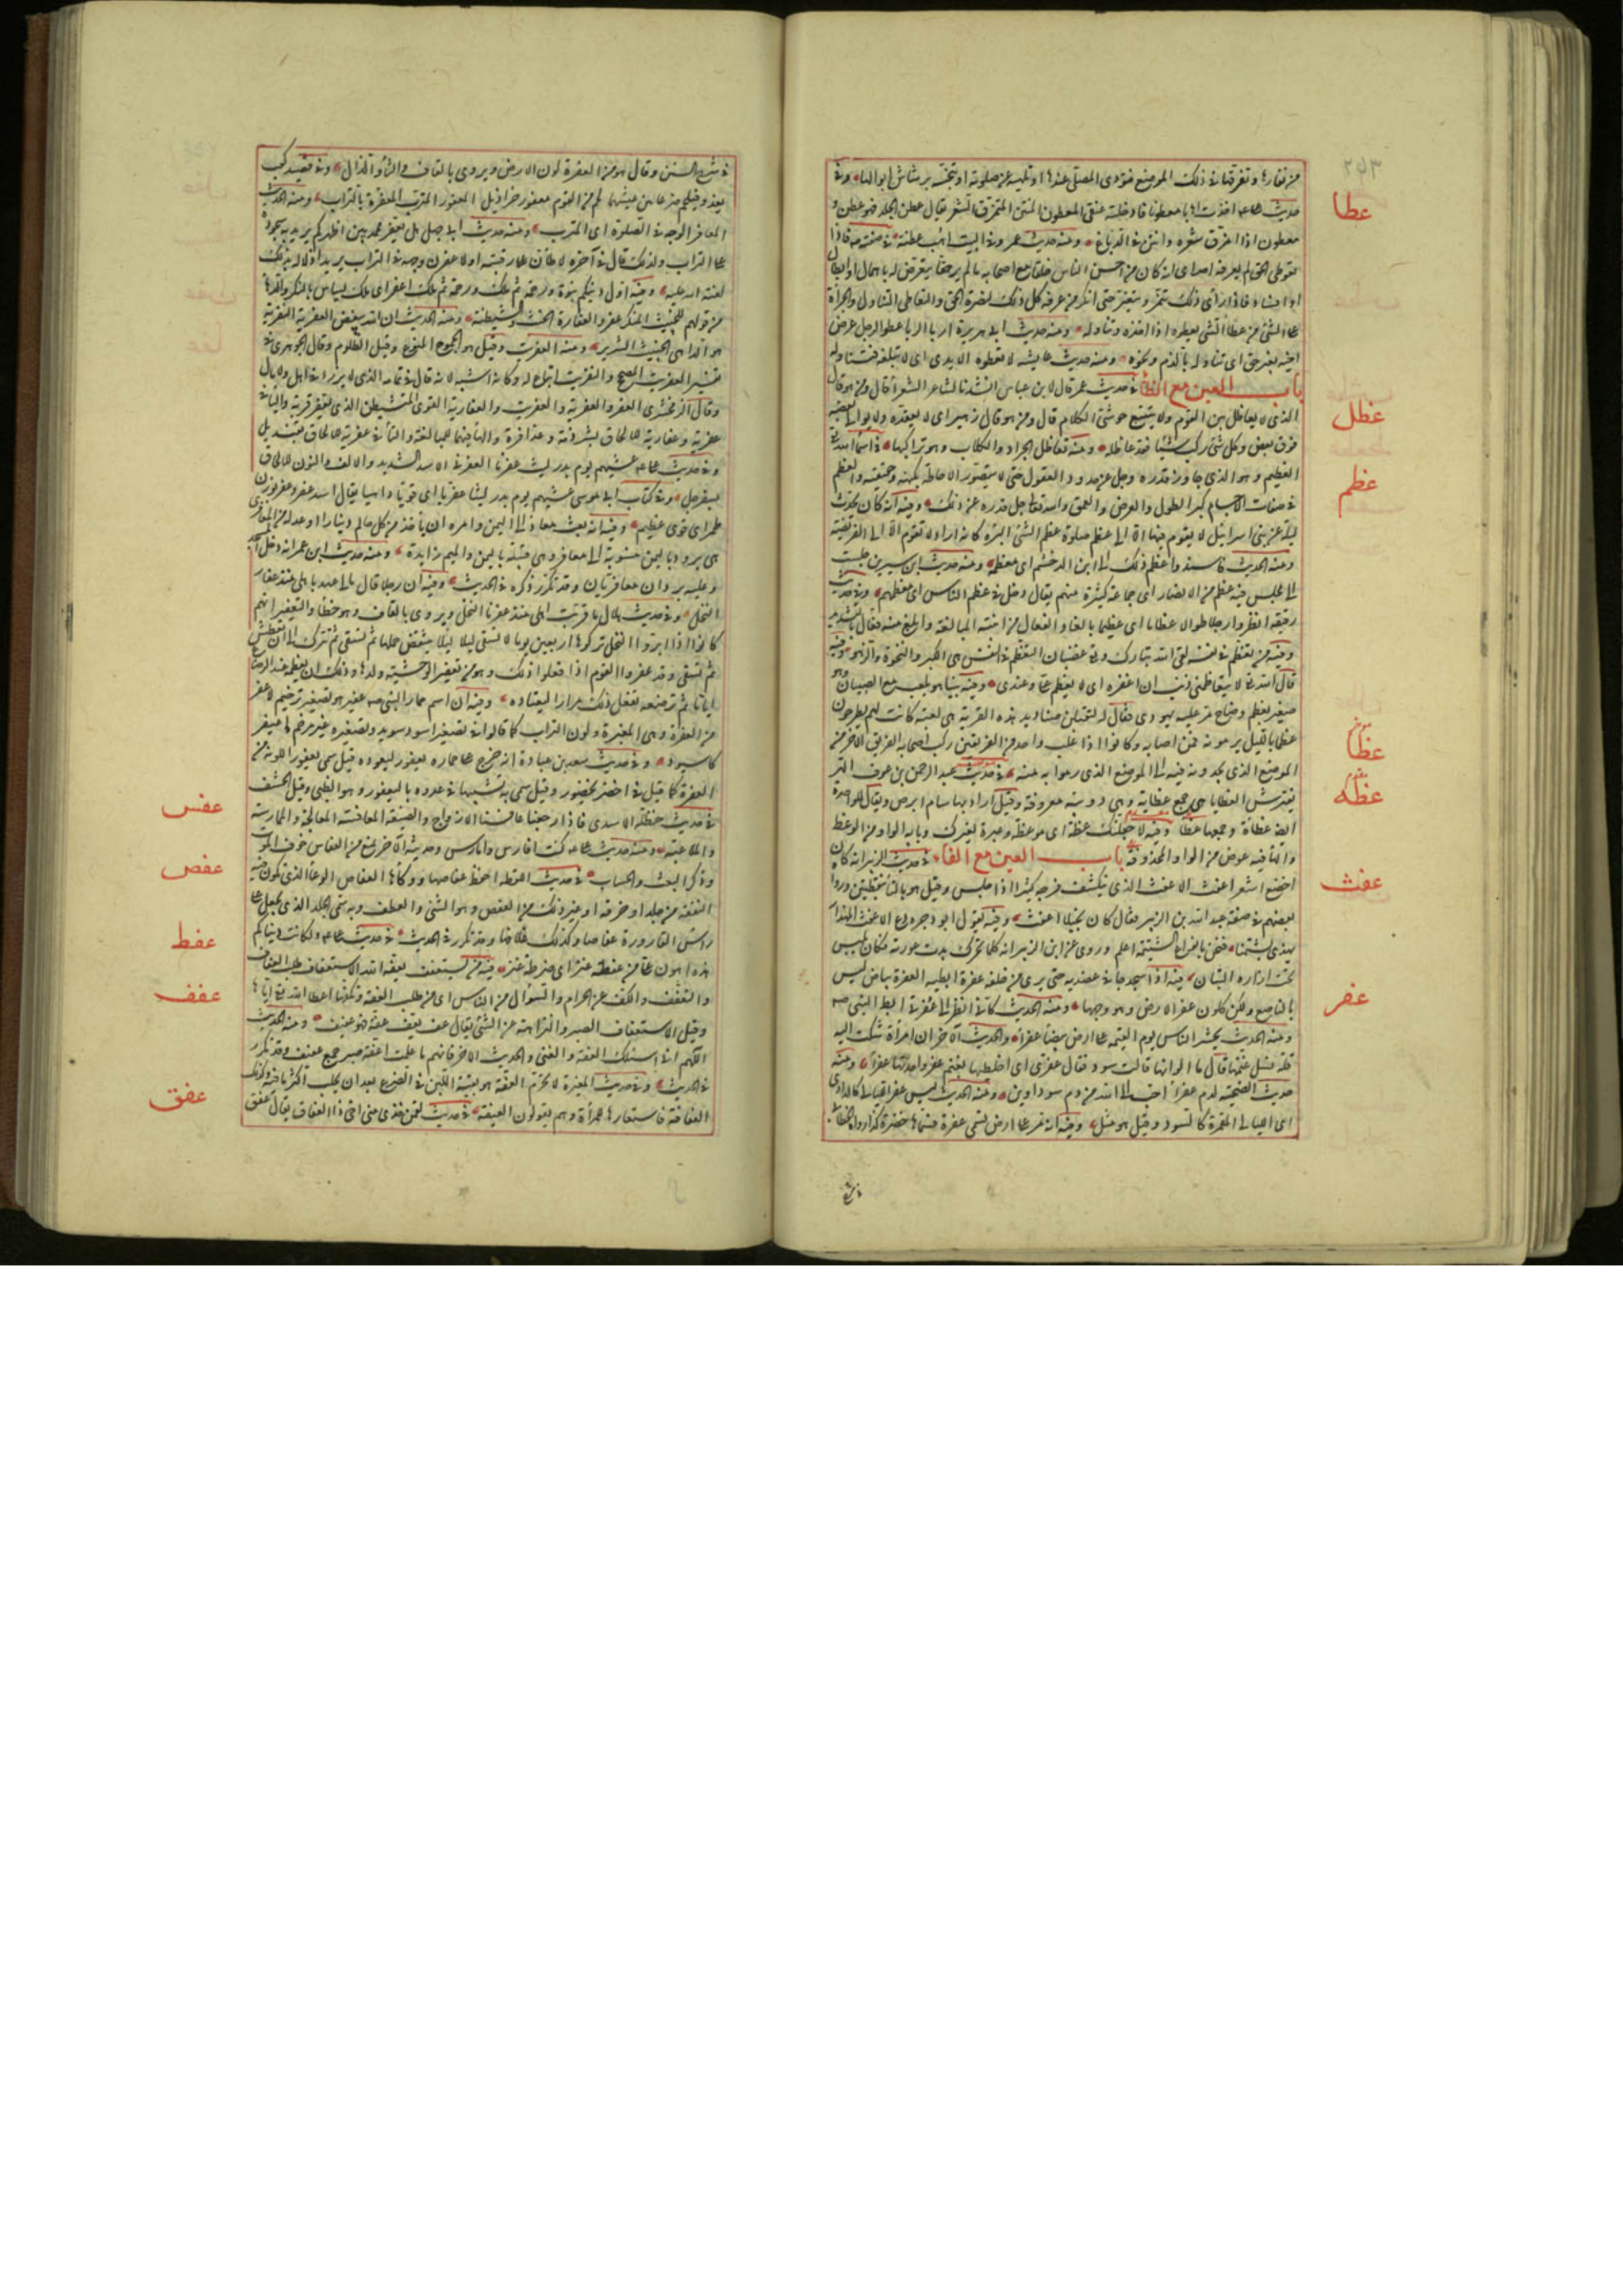 ٢٥٣
من نفارها وتفرقها في ذلك الموضع فتؤذي المصلي عندها او تلهيه عن صلوته او تنجسه برشاش ابوالها وفي
عطا
حديث علي اخذت اهابا معطونا فادخلته عنقي المعطون المنتن المتمزق الشعر يقال عطن الجلد فهو عطن و
معطون اذا امرق شعره وانتن في الدباغ ومنه حديث عمر وفي البيت اهب عطنة في صفته فاذا
تعوطي الحق لم يعرفه احد اي انه كان من احسن الناس خلقا مع اصحابه ما لم ير حقا يتعرض له باهمال او ابطال
او افساد فاذا رأى ذلك تنمر وتغير حتى انكره من عرفه كل ذلك لنصرة الحق والتعاطي التناول والجرأة
على الشئ من عطا الشئ يعطوه اذا اخذه وتناوله ومنه حديث ابي هريرة اربا الربا عطو الرجل عرض
اخيه بغير حق اي تناوله بالذم ونحوه ومنه حديث عايشه لا تعطوه الايدي اي لا تبلغه فتتناوله
باب العين مع الظا في حديث عمر قال لابن عباس انشدنا لشاعر الشعراء قال ومن هو قال
عظل
الذي لا يعاظل بين القوم ولا يتتبع حوشي الكلام قال ومن هو قال زهير اي لا يعقده ولا يوالي بعضه
فوق بعض وكل شئ ركب شيئا فقد عاظله ومنه تعاظل الجراد والكلاب وهو تراكبها في اسماء الله تعالى
عظم
العظيم وهو الذي جاوز قدره وجل عن حدود العقول حتى لا يتصور الاحاطة بكنهه وحقيقته والعظم
في صفات الاجسام كبر الطول والعرض والعمق والله تعالى جل قدره عن ذلك وفيه انه كان يحدث
ليلة عن بني اسرائيل لا يقوم فيها الا الى عظم صلوة عظم الشئ اكبره كانه اراد لا يقوم الا الى الفريضة
ومنه الحديث فاسندوا عظم ذلك الى ابن الدخشم اي معظمه ومنه حديث ابن سيرين جلست
الى مجلس فيه عظم من الانصار اي جماعة كثيرة منهم يقال دخل في عظم الناس اي معظمهم وفي حديث
رقيقه انظروا رجلا طوالا عظاما اي عظيما بالغا والفعال من ابنية المبالغة وابلغ منه فعال بالتشديد
وفيه من تعظم في نفسه لقي الله تبارك وتعالى غضبان التعظم في النفس هو الكبر والنخوة والزهو وفيه
قال الله تعالى لا يتعاظمني ذنب ان اغفره اي لا يعظم علي وعندي وفيه بينا هو يلعب مع الصبيان وهو
صغير بعظم وضاح مر عليه يهودي فقال له لتقتلن صناديد هذه القرية هي لعبة كانت لهم يطرحون
عظما بالليل يرمونه فمن اصابه وكانوا اذا غلب واحد من الفريقين ركب اصحابه الفريق الاخر من
عظا
الموضع الذي يجدونه فيه الى الموضع الذي رموا به منه في حديث عبد الرحمن بن عوف الهر
عظه
يفترش العظايا هي جمع عظاية وهي دويبة معروفة وقيل اراد بها سام ابرص ويقال للواحدة
ايضا عظاءة وجمعها عظا وفيه لاجعلنك عظة اي موعظة وعبرة لغيرك وبابه الواو من الوعظ
والها فيه عوض من الواو المحذوفة باب العين مع الفاء في حديث الزبير انه كان
عفث
اخضع اشعر اعفث الاعفث الذي ينكشف فرجه كثيرا اذا جلس وقيل هو بالتاء بنقطتين ورواه
بعضهم في صفة عبد الله بن الزبير فقال كان بخيلا اعفث وفيه يقول ابو وجزه دع الاعفث المهذار
يهذي بشتمنا فنحن بانواع الشتيمة اعلم وروي عن ابن الزبير انه كلما تحرك بدت عورته فكان يلبس
تحت ازاره التبان فيه اذا سجد جافى عضديه حتى يرى من خلفه عفرة ابطيه العفرة بياض ليس
عفر
بالناصع ولكن كلون عفر الارض وهو وجهها ومنه الحديث كاني انظر الى عفرتي ابط النبي صه
ومنه الحديث يحشر الناس يوم القيمة على ارض بيضاء عفراء والحديث الاخر ان امرأة شكت اليه
قلة نسل غنمها قال ما الوانها قالت سود فقال عفري اي اخلطيها بغنم عفر واحدتها عفراء ومنه
حديث الضحية لدم عفراء احب الى الله من دم سوداوين ومنه الحديث ليس عفر الليالي كالدادي
اي الليالي المقمرة كالسود وقيل هو مثل وفيه انه مر على ارض تسمى عفرة فسماها خضرة كذا رواه الخطابي
في شرح السنن وقال هو من العفرة لون الارض ويروى بالقاف والثاء والذال وفي قصيد كعب
يغدو فيلحم ضرغامين عيشهما لحم من القوم معفور خراذيل المعفور المترب المعفر بالتراب ومنه الحديث
العافر الوجه في الصلوة اي المترب ومنه حديث ابي جهل هل يعفر محمد بين اظهركم يريد به سجوده
على التراب ولذلك قال في آخره لاطأن على رقبته او لاعفرن وجهه في التراب يريد اذلاله بذلك
لعنة الله عليه وفيه اول دينكم نبوة ورحمة ثم ملك ورحمة ثم ملك اعفر اي ملك يساس بالنكر والدها
من قولهم للخبيث المنكر عفر والعفارة الخبث والشيطنة ومنه الحديث ان الله يبغض العفرية النفرية
هو الداهي الخبيث الشرير ومنه العفريت وقيل هو الجموع المنوع وقيل الظلوم وقال الجوهري في
تفسير العفريت المصحح والنفريت اتباع له وكانه اشبه لانه قال في تمامه الذي لا يرزأ في اهل ولا مال
وقال الزمخشري العفر والعفرية والعفريت والعفارية القوي المتشيطن الذي يعفر قرنه والياء في
عفرية وعفارية للالحاق بشرذمة وعذافرة والهاء فيهما للمبالغة والتاء في عفريت للالحاق بقنديل
وفي حديث علي غشيهم يوم بدر ليث عفرنا العفرنا الاسد الشديد والالف والنون للالحاق
بسفرجل وفي كتاب ابي موسى غشيهم يوم بدر ليثا عفريا اي قويا داهيا يقال اسد عفر وعفر بوزن
طمر اي قوي عظيم وفيه انه بعث معاذا الى اليمن وامره ان ياخذ من كل حالم دينارا او عدله من المعافري
هي برود باليمن منسوبة الى معافر وهي قبيلة باليمن والميم زايدة ومنه حديث ابن عمر انه دخل المسجد
وعليه بردان معافريان وقد تكرر ذكره في الحديث وفيه ان رجلا قال ما لي عهد باهلي منذ عفار
النخل وفي حديث هلال ما قربت اهلي منذ عفرنا النخل ويروى بالقاف وهو خطأ والتعفير انهم
كانوا اذا ابروا النخل تركوها اربعين يوما لا تسقى ليلا ينتفض حملها ثم تسقى ثم تترك الى ان تعطش
ثم تسقى وقد عفر القوم اذا فعلوا ذلك وهو من تعفير الوحشية ولدها وذلك ان تفطمه عند الرضاع
اياما ثم ترضعه تفعل ذلك مرارا ليعتاده وفيه ان اسم حمار النبي صه عفير هو تصغير ترخيم لاعفر
من العفرة وهي الغبرة ولون التراب كما قالوا في تصغير اسود سويد وتصغيره غير مرخم اعيفر
كاسيود وفي حديث سعد بن عبادة انه خرج على حماره يعفور ليعوده قيل سمي يعفورا للونه من
العفرة كما قيل في اخضر يخضور وقيل سمي به تشبيها في عدوه باليعفور وهو الظبي وقيل الخشف
عفس
في حديث حنظلة الاسدي فاذا رجعنا عافسنا الازواج والضيعة المعافسة المعالجة والممارسة
والملاعبة ومنه حديث علي كنت اعافس وامارس وحديثه الاخر يمنع من العفاس خوف الموت
عفص
وذكر البعث والحساب في حديث اللقطة احفظ عفاصها ووكاءها العفاص الوعاء الذي تكون فيه
النفقة من جلد او خرقة او غير ذلك من العفص وهو الثني والعطف وبه سمي الجلد الذي يجعل على
عفط
راس القارورة عفاصا وكذلك غلافها وقد تكرر في الحديث في حديث علي ولكانت دنياكم
هذه اهون علي من عفطة عنز اي ضرطة عنز فيه من يستعفف يعفه الله الاستعفاف طلب العفاف
عفف
والتعفف والكف عن الحرام والسؤال من الناس اي من طلب العفة وتكلفها اعطاه الله تعالى اياها
وقيل الاستعفاف الصبر والنزاهة عن الشئ يقال عف يعف عفة فهو عفيف ومنه الحديث
اللهم اني اسئلك العفة والغنى والحديث الاخر فانهم ما علمت اعفة صبر جمع عفيف وقد تكرر
في الحديث وفي حديث المغيرة لا تحرم العفة هو بقية اللبن في الضرع بعد ان يحلب اكثر ما فيه وكذلك
عفق
العفافة فاستعارها للمرأة وهم يقولون العيفة في حديث لقمن خذي مني اخي ذا العفاق يقال عفق